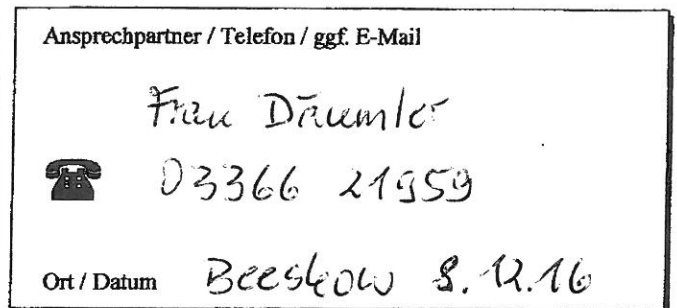 Ansprechpartner / Telefon / ggf. E-Mail
Frau Däumler
03366 21959
Ort / Datum Beeskow 8.12.16